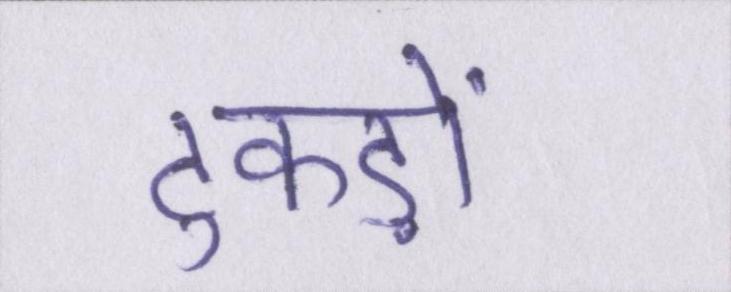 टुकड़ों